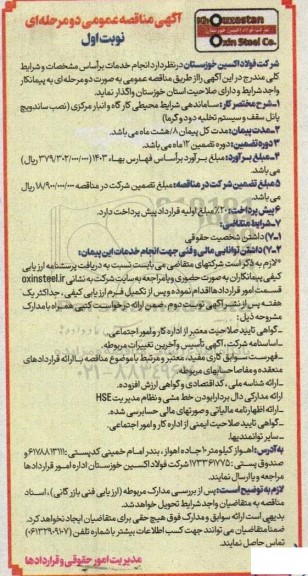 آگهی مناقصه عمومی دو مرحله ای
نوبت اول
Khouzestan
Oxin Steel Co.
شرکت فولاد اکسین خوزستان در نظر دارد انجام خدمات براساس مشخصات و شرایط
کلی مندرج در این آگهی را از طریق مناقصه عمومی به صورت دو مرحله ای به پیمانکار
واجد شرایط و دارای صلاحیت استان خوزستان واگذار نماید.
۱-شرح مختصر کار: ساماندهی شرایط محیطی کارگاه و انبار مرکزی (نصب ساندویچ
پانل سقف و سیستم تخلیه دود و گرما)
۲-مدت پیمان: مدت کل پیمان ۸/هشت ماه می باشد.
۳-دوره تضمین: دوره تضمین ۱۲ ماه می باشد.
۴-مبلغ برآورد: مبلغ برآورد براساس فهارس بهاء ۱۴۰۳ ۳۷۹/۳۰۲/۰۰۰/۰۰۰ ریال
می باشد.
۵-مبلغ تضمین شرکت در مناقصه: مبلغ تضمین شرکت در مناقصه ۱۸/۹۰۰/۰۰۰/۰۰۰ ریال
می باشد.
۶-پیش پرداخت: ۲۰٪ مبلغ اولیه قرارداد پیش پرداخت دارد.
۷-شرایط متقاضی:
۷-۱) داشتن شخصیت حقوقی
۷-۲) داشتن توانایی مالی و فنی جهت انجام خدمات این پیمان:
*لازم به ذکر است شرکتهای متقاضی می بایست نسبت به دریافت پرسشنامه ارزیابی
کیفی پیمانکاران به صورت حضوری و یا مراجعه به سایت شرکت به نشانی oxinsteel.ir
قسمت امور قراردادها اقدام نموده و پس از تکمیل فرم ارزیابی کیفی، حداکثر یک
هفته پس از نشر آگهی نوبت دوم، ضمن ارائه درخواست کتبی همراه با مدارک
مشروحه ذیل:
-گواهی تایید صلاحیت معتبر از اداره کار و امور اجتماعی.
-اساسنامه شرکت، آگهی تأسیس و آخرین تغییرات مربوطه.
-فهرست سوابق کاری مفید، معتبر و مرتبط با موضوع مناقصه با ارائه قراردادهای
منعقده و مفاصاحسابهای مربوطه.
-ارائه شناسه ملی، کد اقتصادی و گواهی ارزش افزوده.
ارائه مدارکی دال بر دارا بودن خط مشی و نظام مدیریت HSE
-ارائه اظهارنامه مالیاتی و صورتهای مالی حسابرسی شده.
-گواهی تایید صلاحیت ایمنی از اداره کار و امور اجتماعی.
-سایر توانمندیها.
به آدرس: اهواز کیلومتر ۱۰ جاده اهواز، بندر امام خمینی کدپستی: ۶۱۷۸۸۱۳۱۱۱ و
صندوق پستی: ۱۷۳۳۶۱۷۷۵ شرکت فولاد اکسین خوزستان اداره امور قراردادها
مراجعه و یا ارسال نمایند.
لازم به توضیح است: پس از بررسی مدارک مربوطه (ارزیابی فنی بازرگانی)، اسناد
مناقصه به متقاضیان واجد شرایط تحویل خواهد شد.
بدیهی است ارائه سوابق و مدارک فوق هیچ حقی برای متقاضیان ایجاد نخواهد کرد.
ضمناً متقاضیان می توانند جهت کسب اطلاعات بیشتر با شماره تلفن (۰۶۱۳۲۹۰۹۱۰۷)
تماس حاصل نمایند.
مدیریت امور حقوقی و قراردادها